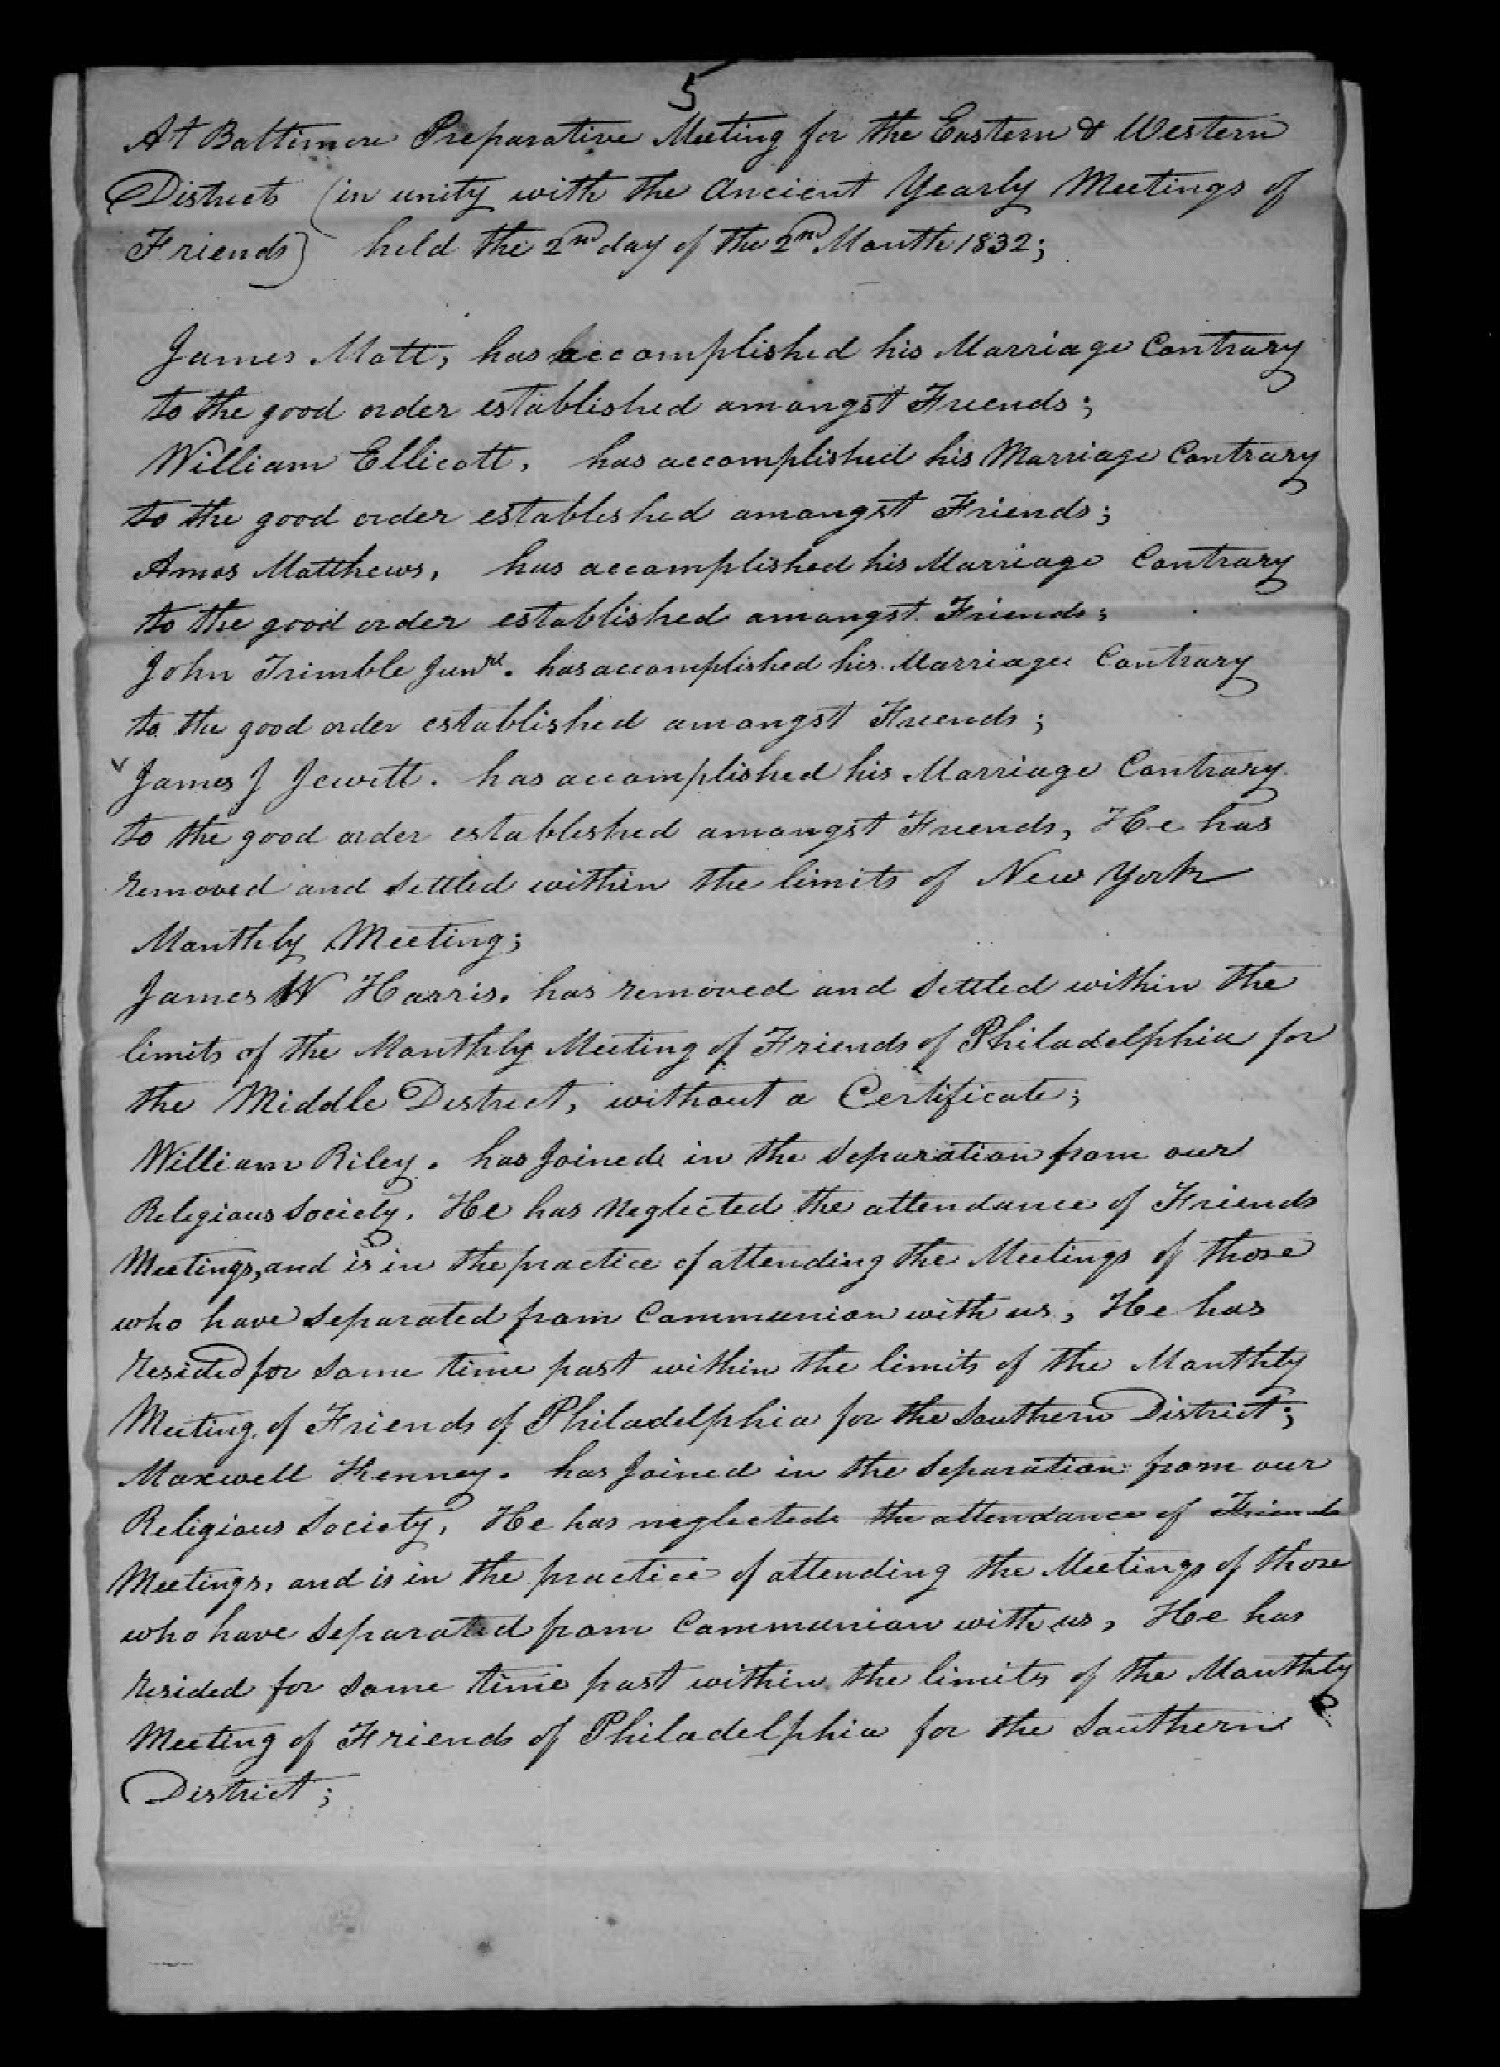 5
At Baltimore Preparative Meeting for the Eastern & Western
Districts (in unity with the Ancient Yearly Meetings of
Friends) held the 2nd day of the 2nd Month 1832;
James Mott, has accomplished his Marriage Contrary
to the good order established amongst Friends;
William Ellicott, has accomplished his Marriage Contrary
to the good order established amongst Friends;
Amos Matthews, has accomplished his Marriage Contrary
to the good order established amongst Friends;
John Trimble Junr. has accomplished his Marriage Contrary
to the good order established amongst Friends;
James J Jewett. has accomplished his Marriage Contrary
to the good order established amongst Friends, He has
removed and settled within the limits of New York
Monthly Meeting;
James W Harris. has removed and settled within the
limits of the Monthly Meeting of Friends of Philadelphia for
the Middle District, without a Certificate;
William Riley. has Joined in the Separation from our
Religious Society. He has neglected the attendance of Friends
Meetings, and is in the practice of attending the Meetings of those
who have separated from Communion with us, He has
resided for some time past within the limits of the Monthly
Meeting of Friends of Philadelphia for the Southern District;
Maxwell Kenney. has Joined in the Separation from our
Religious Society, He has neglected the attendance of Friends
Meetings, and is in the practice of attending the Meetings of those
who have separated from Communion with us, He has
resided for some time past within the limits of the Monthly
Meeting of Friends of Philadelphia for the Southern
District;